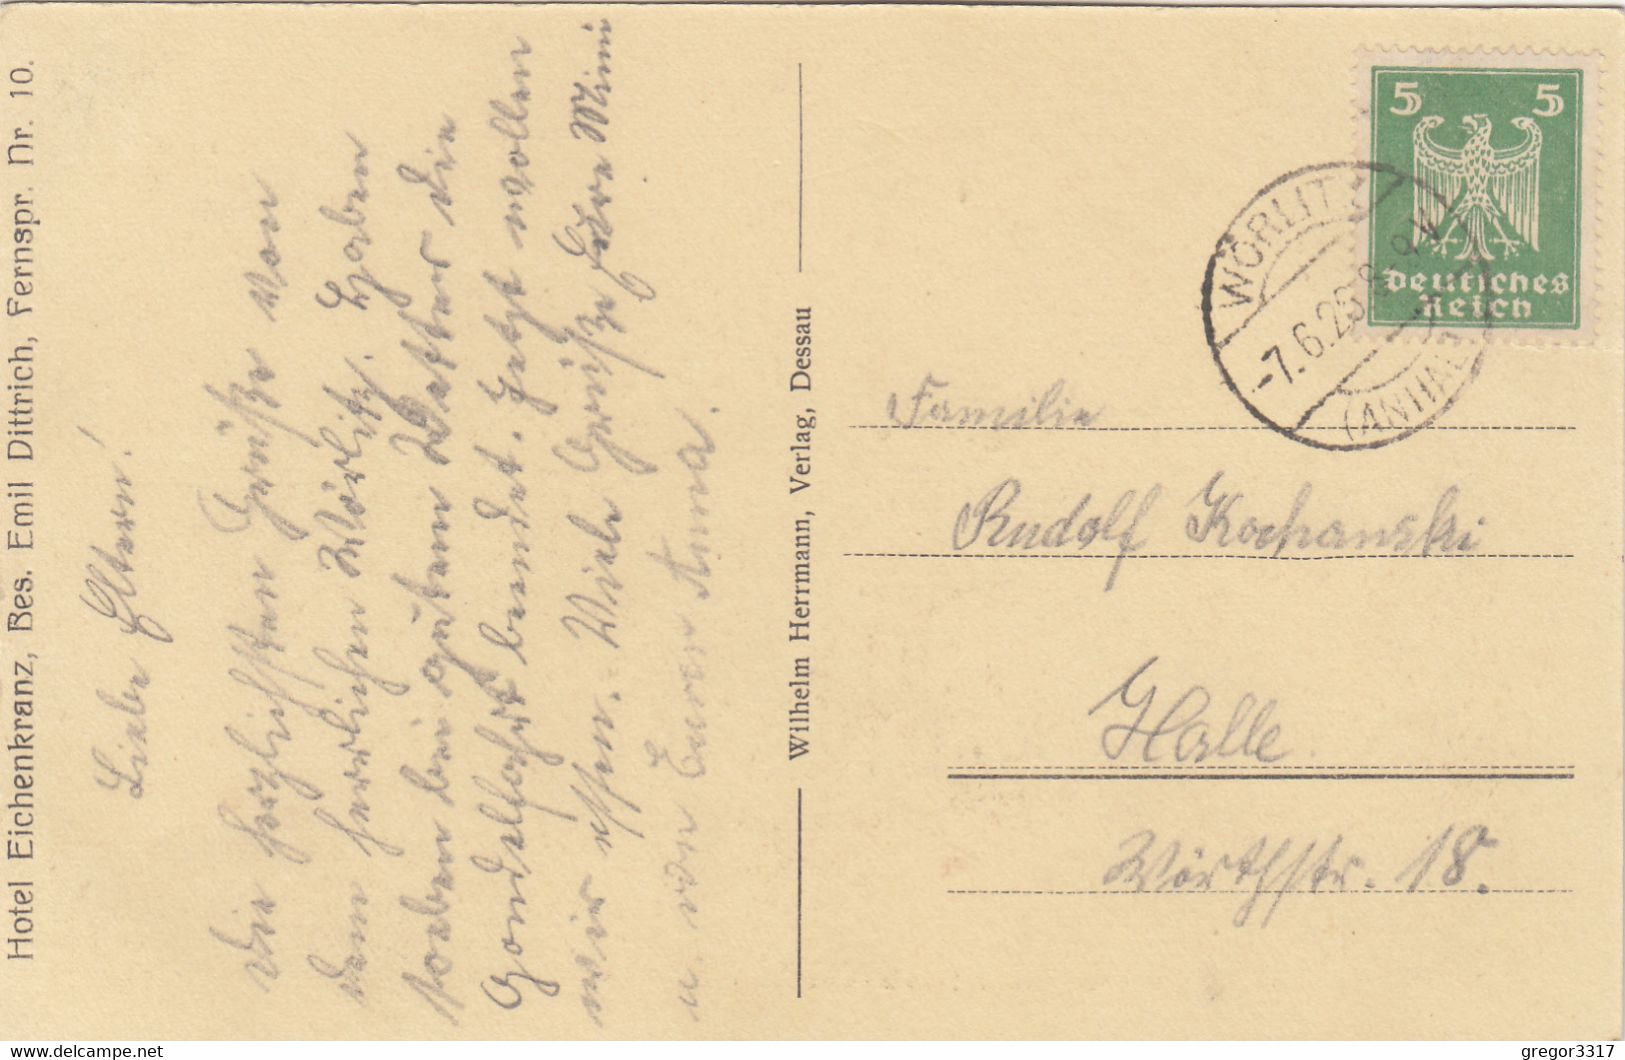 Hotel Eichenkranz, Bes. Emil Dittrich, Fernspr. Nr. 10.
Liebe Eltern!
Die herzlichsten Grüße von
dem herrlichen Wörlitz. Haben
soeben bei gutem Wetter die
Gondelfahrt beendet. Jetzt wollen
wir essen. Viele Grüße Eure Mimi
u. von Eurer Anna.
Wilhelm Herrmann, Verlag, Dessau
5 5
Deutsches
Reich
WÖRLITZ
-7.6.25 8-9 V
(ANHALT)
Familie
Rudolf Kochanski
Halle
Wörthstr. 18.
gregor3317
www.delcampe.net